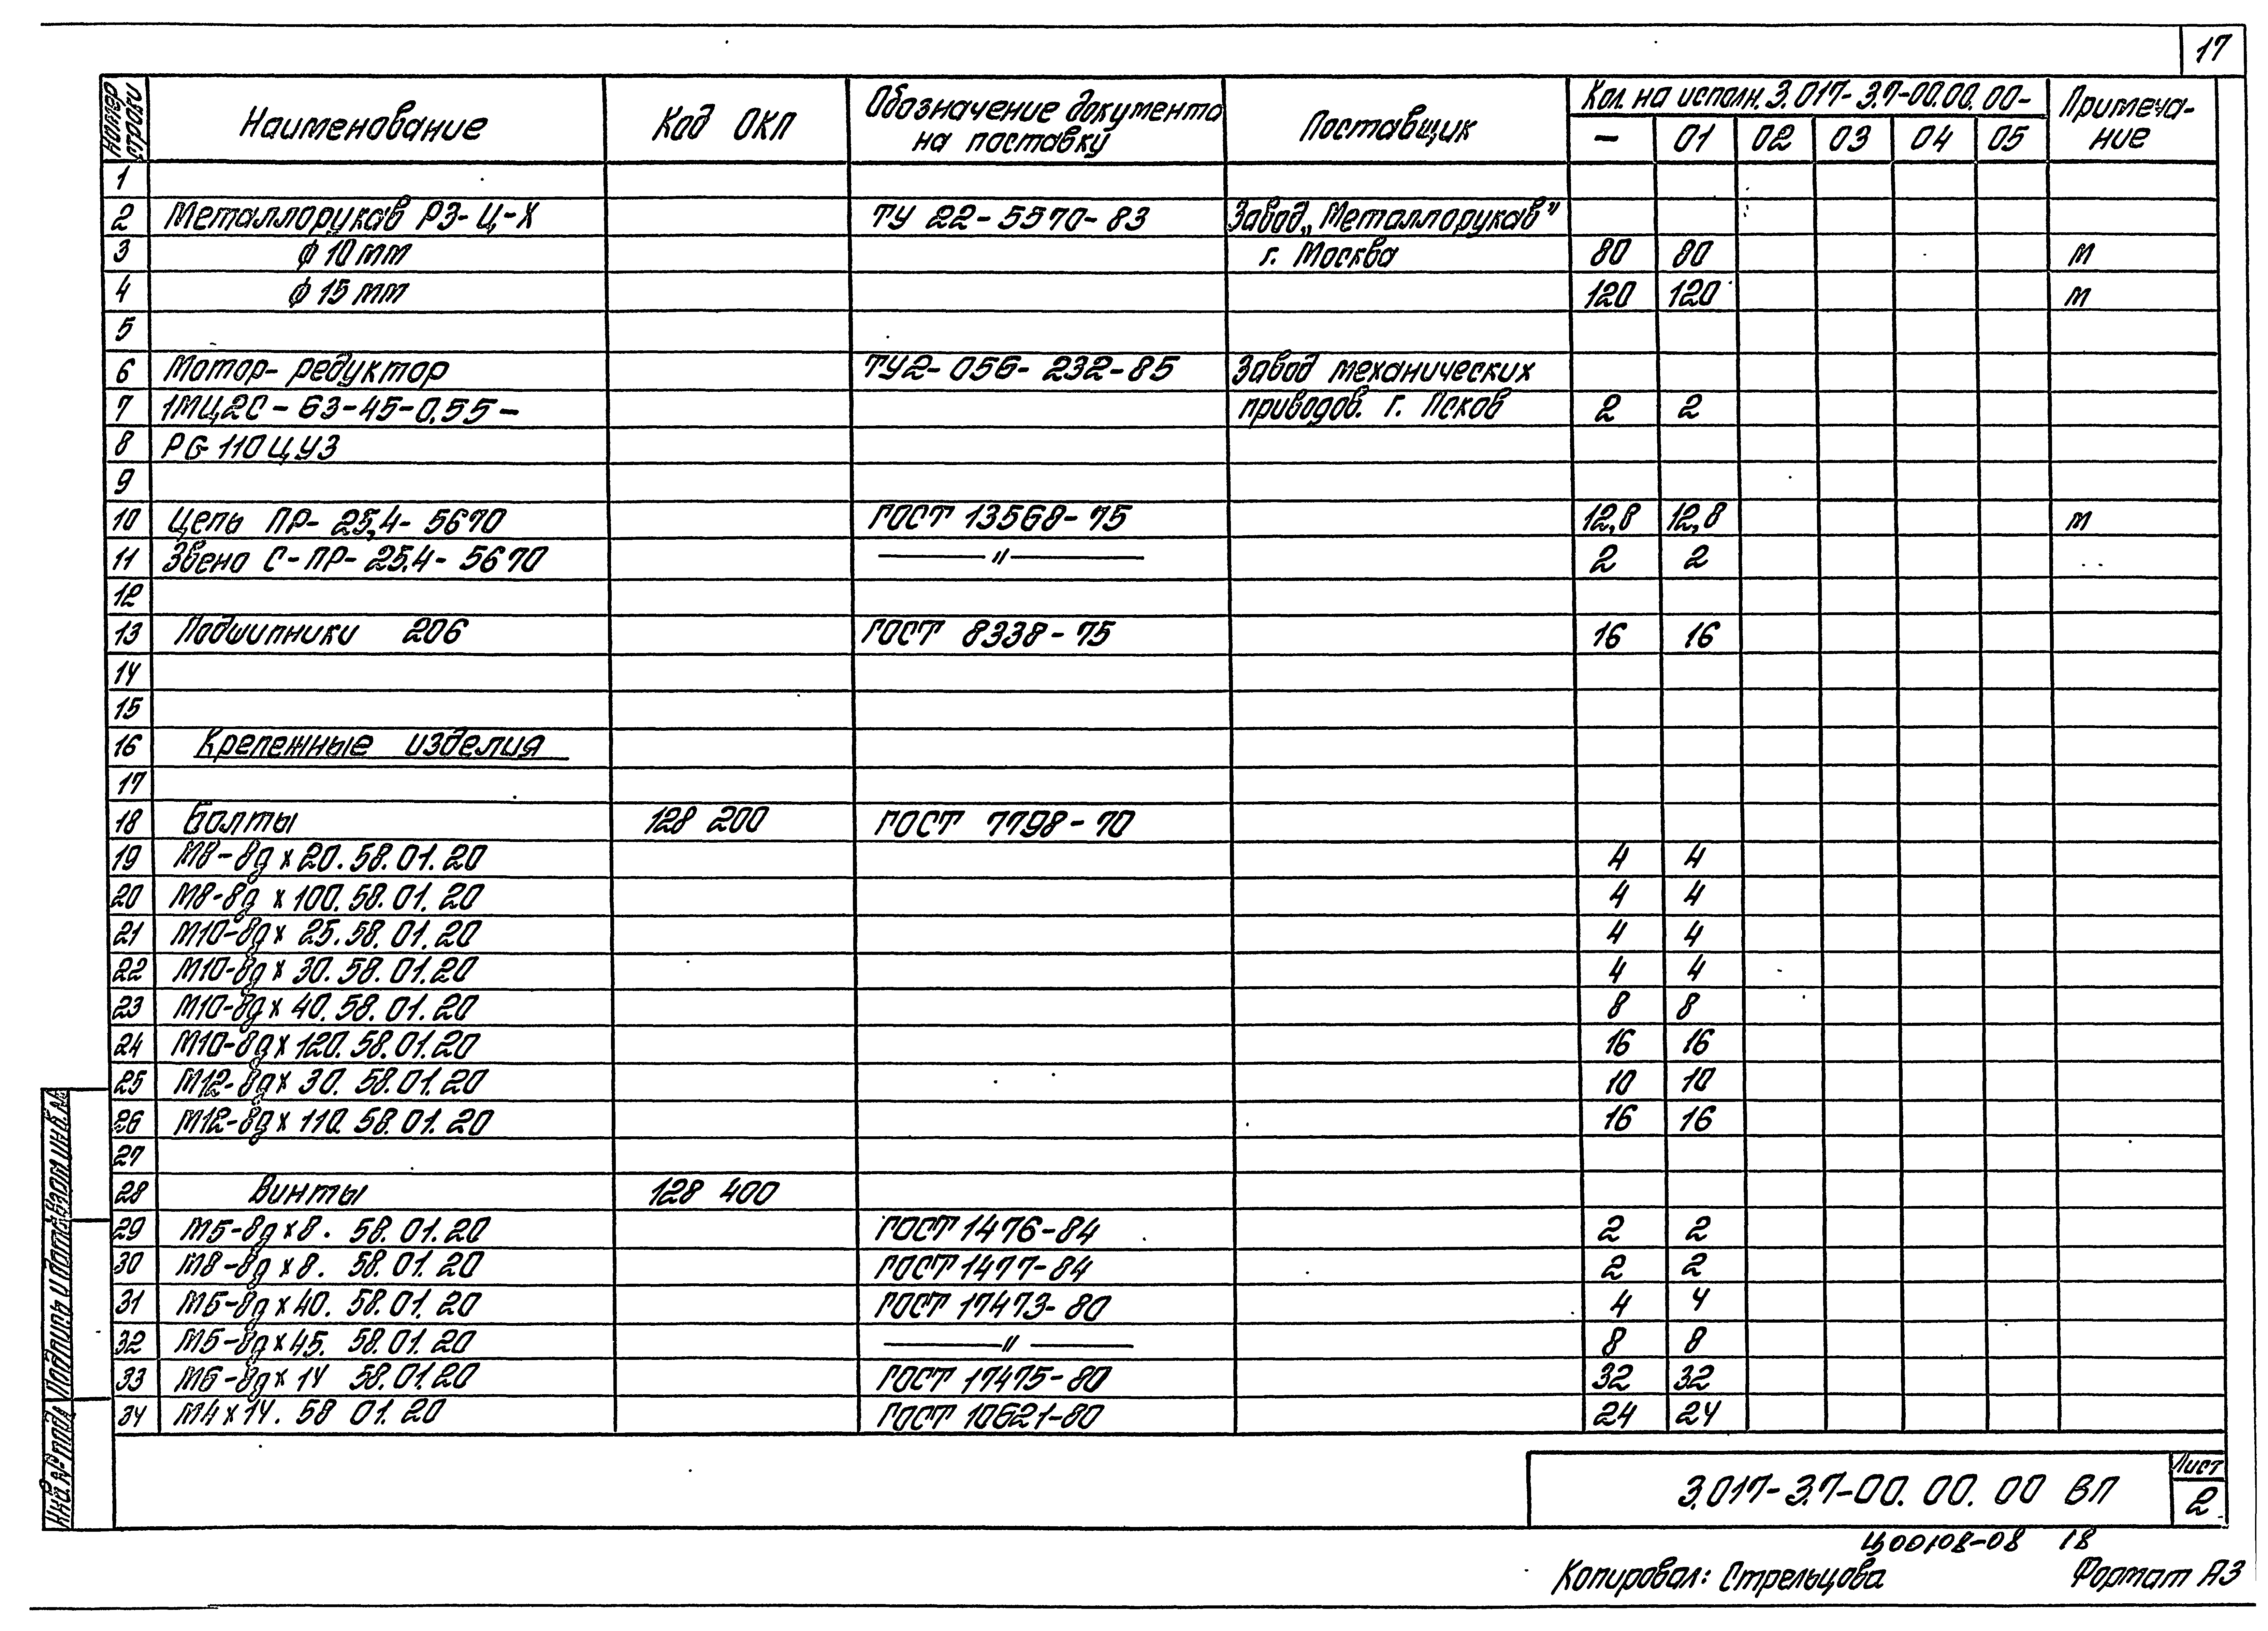 17
Номер строки | Наименование | Код ОКП | Обозначение документа на поставку | Поставщик | Кол. на исполн. 3.017-3.7-00.00.00- | Примечание
– | 01 | 02 | 03 | 04 | 05
1
2 Металлорукав РЗ-Ц-Х ТУ 22-5570-83 Завод „Металлорукав"
3 ф 10 мм г. Москва 80 80 м
4 ф 15 мм 120 120 м
5
6 Мотор-редуктор ТУ2-056-232-85 Завод механических
7 1МЦ2С-63-45-0,55- приводов. г. Псков 2 2
8 РG 110ЦУ3
9
10 Цепь ПР-25,4-5670 ГОСТ 13568-75 12,8 12,8 м
11 Звено С-ПР-25,4-5670 —"— 2 2
12
13 Подшипники 206 ГОСТ 8338-75 16 16
14
15
16 Крепежные изделия
17
18 Болты 128 200 ГОСТ 7798-70
19 М8-8g х 20.58.01.20 4 4
20 М8-8g х 100.58.01.20 4 4
21 М10-8g х 25.58.01.20 4 4
22 М10-8g х 30.58.01.20 4 4
23 М10-8g х 40.58.01.20 8 8
24 М10-8g х 120.58.01.20 16 16
25 М12-8g х 30.58.01.20 10 10
26 М12-8g х 110.58.01.20 16 16
27
28 Винты 128 400
29 М5-8g х 8. 58.01.20 ГОСТ 1476-84 2 2
30 М8-8g х 8. 58.01.20 ГОСТ 1477-84 2 2
31 М5-8g х 40. 58.01.20 ГОСТ 17473-80 4 4
32 М5-8g х 45. 58.01.20 —"— 8 8
33 М6-8g х 14 58.01.20 ГОСТ 17475-80 32 32
34 М4 х 14. 58 01.20 ГОСТ 10621-80 24 24
Инв.№ подл. Подпись и дата Взам.инв.№
3.017-3.7-00.00.00 ВП
Лист
2
Ц00108-08 18
Копировал: Стрельцова Формат А3